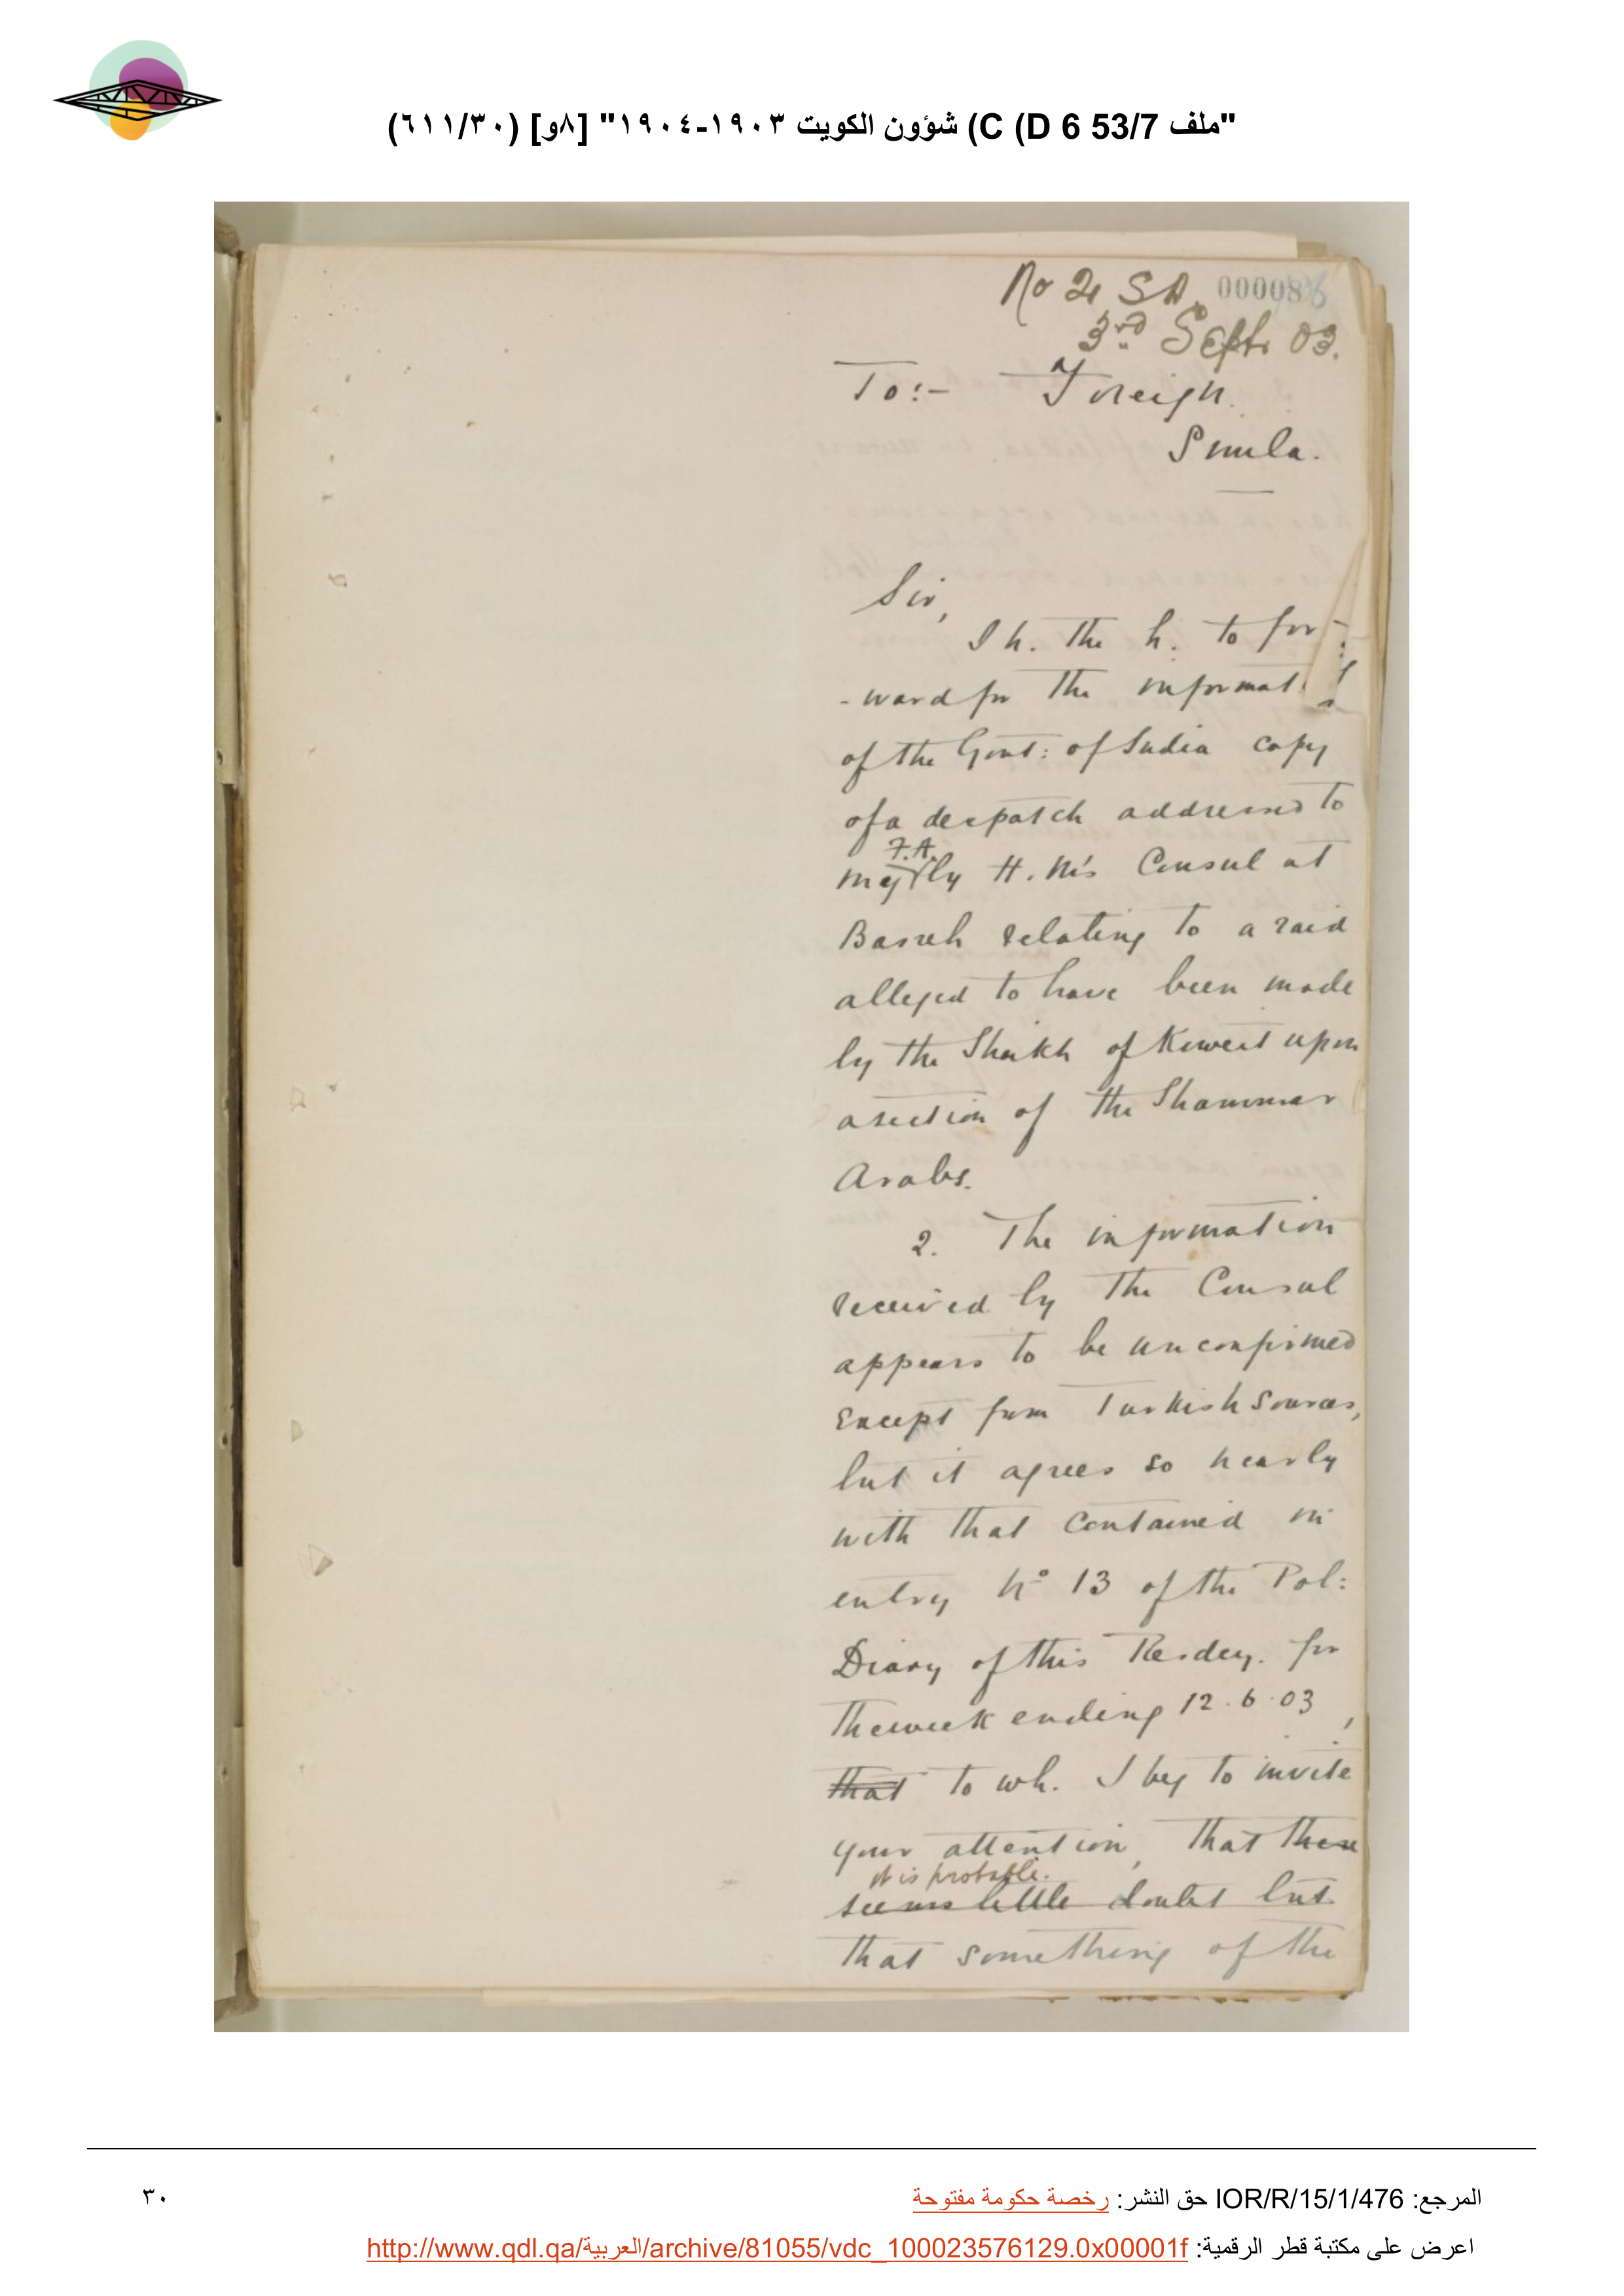 "ملف 53/7 C (D 6) شؤون الكويت ١٩٠٣-١٩٠٤" [٨و] (٦١١/٣٠)
No 21 SA. 000083
3rd Sept. 03.
To:- Foreign.
Simla.
Sir,
I h. the h. to for-
-ward for the informat
of the Govt: of India copy
of a despatch addressed to
F.A.
my by H. M's Consul at
Basreh relating to a raid
alleged to have been made
by the Sheikh of Koweit upon
a section of the Shammar
Arabs.
2. The information
received by the Consul
appears to be unconfirmed
except from Turkish sources,
but it agrees so nearly
with that contained in
entry No 13 of the Pol:
Diary of this Resdcy. for
the week ending 12.6.03,
that to wh. I beg to invite
your attention, that there
it is probable.
seems little doubt but
that something of the
المرجع: IOR/R/15/1/476 حق النشر: رخصة حكومة مفتوحة
٣٠
اعرض على مكتبة قطر الرقمية: http://www.qdl.qa/العربية/archive/81055/vdc_100023576129.0x00001f